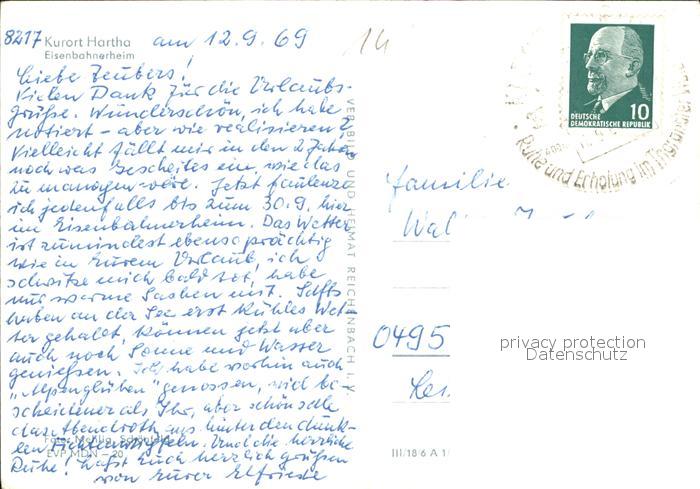 8217 Kurort Hartha am 12.9.69
Eisenbahnerheim
14
Liebe Teubers!
Vielen Dank für die Urlaubs-
grüße. Wunderschön, ich habe
notiert - aber wie realisieren?
Vielleicht fällt mir in den 2 Jahren
noch was Gescheites ein, wie das
zu managen wäre. Jetzt faulenze
ich jedenfalls bis zum 30.9. hier
im Eisenbahnerheim. Das Wetter
ist zumindest ebenso prächtig
wie in Eurem Urlaub, ich
schwitze mich bald tot, habe
nur warme Sachen mit.
haben an der See erst kühles Wet-
ter gehabt, können jetzt aber
auch noch Sonne und Wasser
genießen. Ich habe vorhin auch
"Alpenglühen" genossen, viel be-
scheidener als Ihr, aber schön sah
das Abendroth aus hinter den dunk-
len Fichtenwipfeln. Und die herrliche
Ruhe! Laßt Euch herzlich grüßen
von Eurer Elfriede
EVP MDN -.20
VEB BILD UND HEIMAT REICHENBACH I. V.
III/18 6 A 1/
10
DEUTSCHE
DEMOKRATISCHE REPUBLIK
Ruhe und Erholung im Tharandter
Familie
0495
privacy protection
Datenschutz